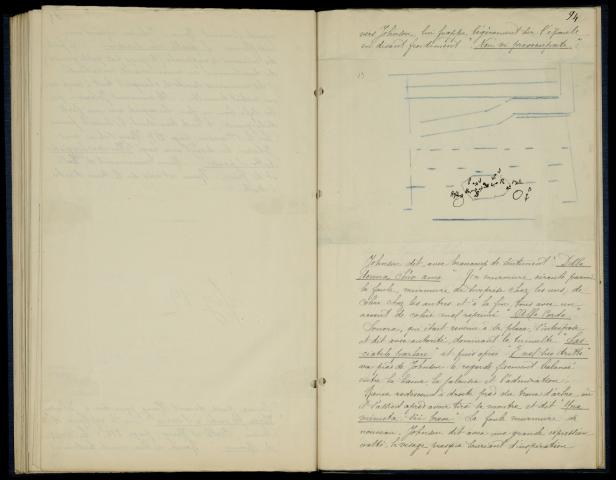 94
vers Johnson, lui frappe légèrement sur l'épaule
en disant froidement "Non vi preoccupate."
Johnson dit avec beaucoup de sentiment "Della
donna ch'io amo" Un murmure circule parmi
la foule, murmure de surprise chez les uns, de
colère chez les autres et à la fin, tous avec un
accent de colère mal réprimé "Alla corda"
Sonora, qui était revenu à sa place, s'interpose
et dit avec autorité, dominant le tumulte "Las-
ciatelo parlare" et puis après "È nel suo diritto"
va près de Johnson le regarde fixement balancé
entre la haine, la jalousie et l'admiration.
Rance redescend à droite près du tronc d'arbre, où
il s'assied après avoir tiré sa montre et dit "Un
minuto: sii breve" La foule murmure de
nouveau, Johnson dit avec une grande expression
le visage presque d'inspiration